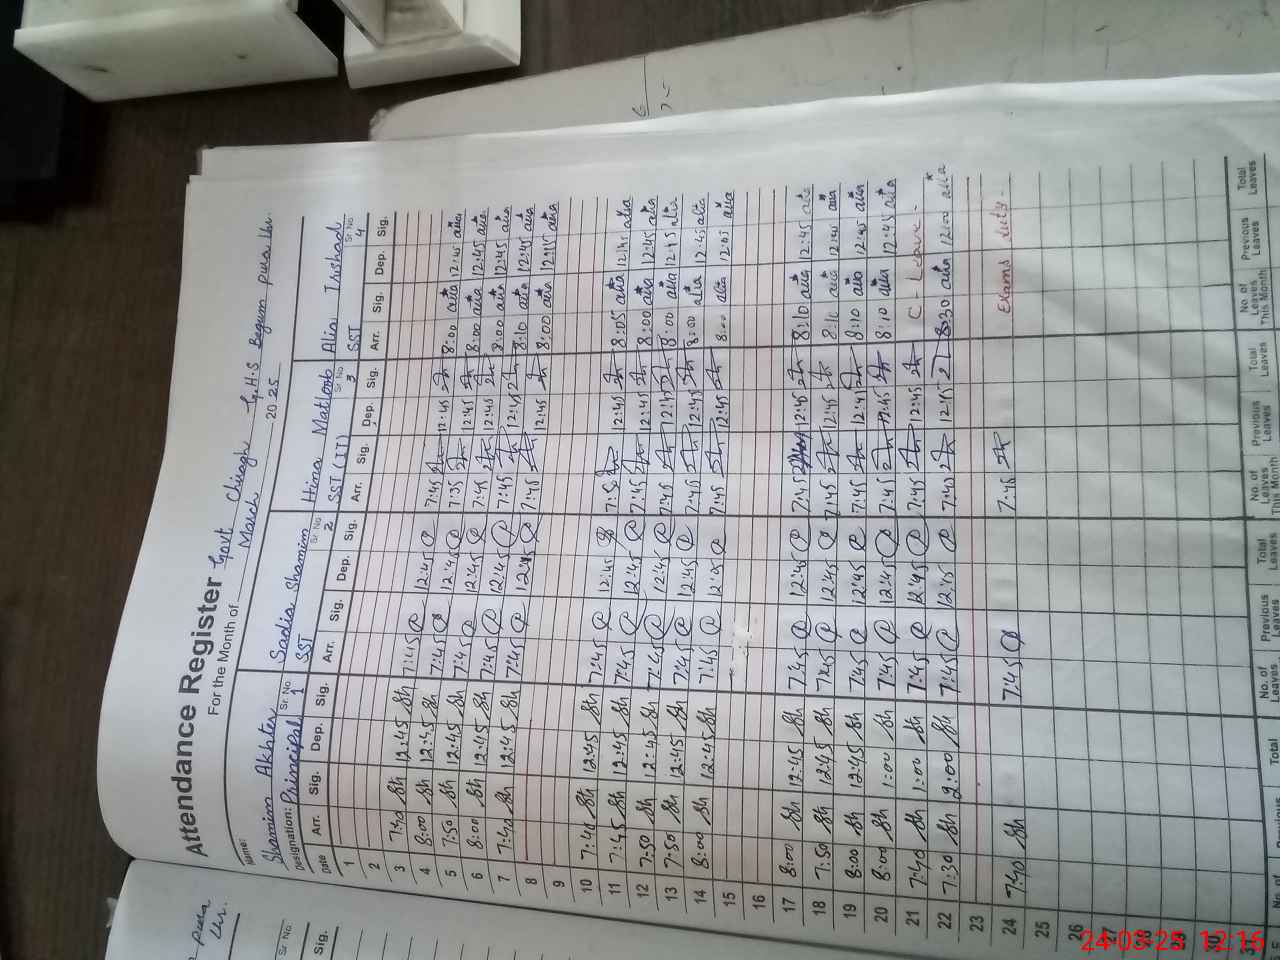 Attendance Register Govt Chiragh G.H.S Begum pura Lhr.
For the Month of March 2025
Name: Shamim Akhter Sadia Shamim Hina Matloob Alia Irshad
Designation: Principal Sr. No 1 SST Sr. No 2 SST (IT) Sr No 3 SST Sr No 4
Date Arr. Sig. Dep. Sig. Arr. Sig. Dep. Sig. Arr. Sig. Dep. Sig. Arr. Sig. Dep. Sig.
1
2
3 7:40 Sh 12:45 Sh 7:45 12:45 7:45 12:45 8:00 alia 12:45 alia
4 8:00 Sh 12:45 Sh 7:45 12:45 7:35 12:45 8:00 alia 12:45 alia
5 7:50 Sh 12:45 Sh 7:45 12:45 7:45 12:45 8:00 alia 12:45 alia
6 8:00 Sh 12:45 Sh 7:45 12:45 7:45 12:45 8:10 alia 12:45 alia
7 7:40 Sh 12:45 Sh 7:45 12:45 7:45 12:45 8:00 alia 12:45 alia
8
9
10 7:45 Sh 12:45 Sh 7:45 12:45 12:45 8:05 alia alia
11 7:45 Sh 12:45 Sh 7:45 12:45 7:45 12:45 8:00 alia 12:45 alia
12 7:50 Sh 12:45 Sh 7:45 12:45 7:45 12:45 8:00 alia 12:45 alia
13 7:50 Sh 12:45 Sh 7:45 12:45 7:45 12:45 8:00 alia 12:45 alia
14 8:00 Sh 12:45 Sh 7:45 12:45 7:45 12:45 8:00 alia 12:05 alia
15
16
17 8:00 Sh 12:45 Sh 7:45 12:45 7:45 12:45 8:10 alia 12:45 alia
18 7:50 Sh 12:45 Sh 7:45 12:45 7:45 12:45 8:10 alia 12:45 alia
19 8:00 Sh 12:45 Sh 7:45 12:45 7:45 12:45 8:10 alia 12:45 alia
20 8:00 Sh 1:00 Sh 7:45 12:45 7:45 12:45 8:10 alia 12:45 alia
21 7:40 Sh 1:00 Sh 7:45 12:45 7:45 12:45 C - Leave -
22 7:30 Sh 2:00 Sh 7:45 12:15 7:45 12:15 8:30 alia 12:00 alia
23
24 7:40 Sh 7:45 7:45 Exams duty -
25
26
27
28
29
30
31
Total No. of Leaves Previous Leaves Total Leaves No. of Leaves This Month Previous Leaves Total Leaves No. of Leaves This Month Previous Leaves Total Leaves
pura
Lhr.
Sr. No
Sig.
24-03-25 12:16